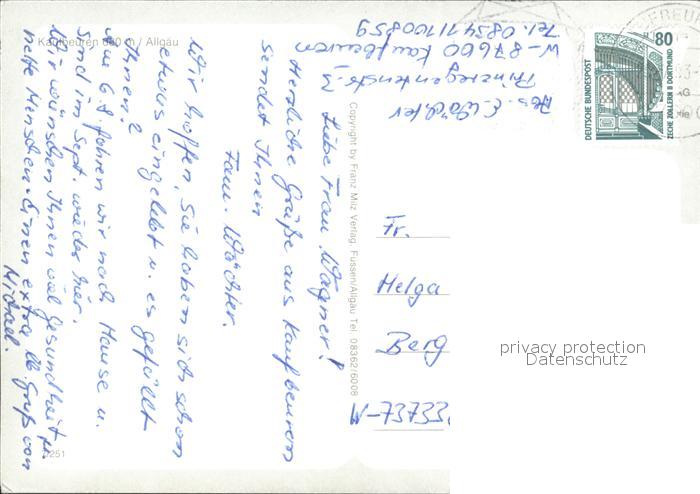 Kaufbeuren 680 m / Allgäu
Liebe Frau Wagner!
Herzliche Grüße aus Kaufbeuren
sendet Ihnen
Fam. Wächter.
Wir hoffen, Sie haben sich schon
etwas eingelebt u. es gefällt
Ihnen?
Am 6.8 fahren wir nach Hause u.
sind im Sept. wieder hier.
Wir wünschen Ihnen viel Gesundheit u.
nette Menschen. Einen extra lb. Gruß von
Michael.
5251
Copyright by Franz Milz Verlag, Füssen/Allgäu Tel. 08362/6008
Abs. E. Wächter
Prinzregentenstr.
W-87600 Kaufbeuren
Tel. 08341/100859
DEUTSCHE BUNDESPOST
80
ZECHE ZOLLERN II DORTMUND
Fr.
Helga
Berg
W-73733
privacy protection
Datenschutz